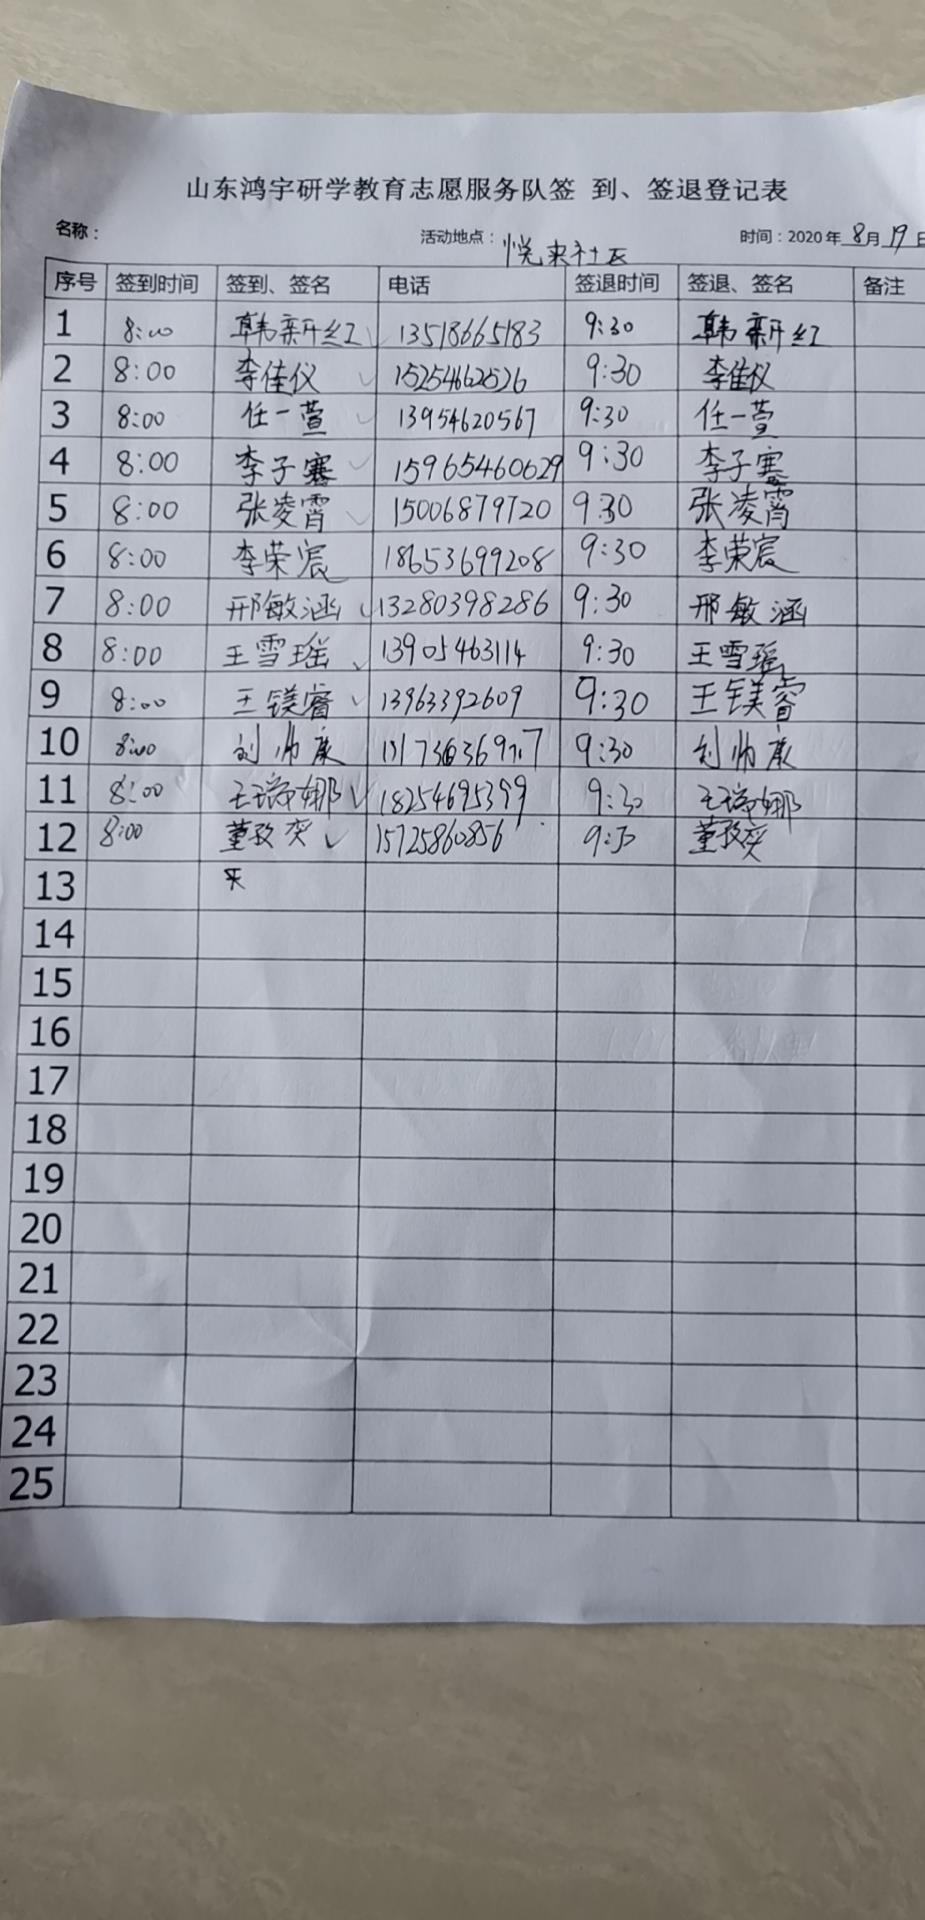 山东鸿宇研学教育志愿服务队签 到、签退登记表
名称： 活动地点： 悦来社区 时间：2020年 8月 19日
序号 签到时间 签到、签名 电话 签退时间 签退、签名 备注
1 8:00 韩新红 13518665183 9:30 韩新红
2 8:00 李佳仪 15254662526 9:30 李佳仪
3 8:00 任一萱 13954620567 9:30 任一萱
4 8:00 李子骞 15965460629 9:30 李子骞
5 8:00 张凌霄 15006879720 9:30 张凌霄
6 8:00 李荣宸 18653699208 9:30 李荣宸
7 8:00 邢敏涵 13280398286 9:30 邢敏涵
8 8:00 王雪瑶 13905463114 9:30 王雪瑶
9 8:00 王镁睿 13963392609 9:30 王镁睿
10 8:00 刘帅康 9:30 刘帅康
11 8:00 王瑞娜 18254695399 9:30 王瑞娜
12 8:00 董孜奕 15725860856 9:30 董孜奕
13
14
15
16
17
18
19
20
21
22
23
24
25